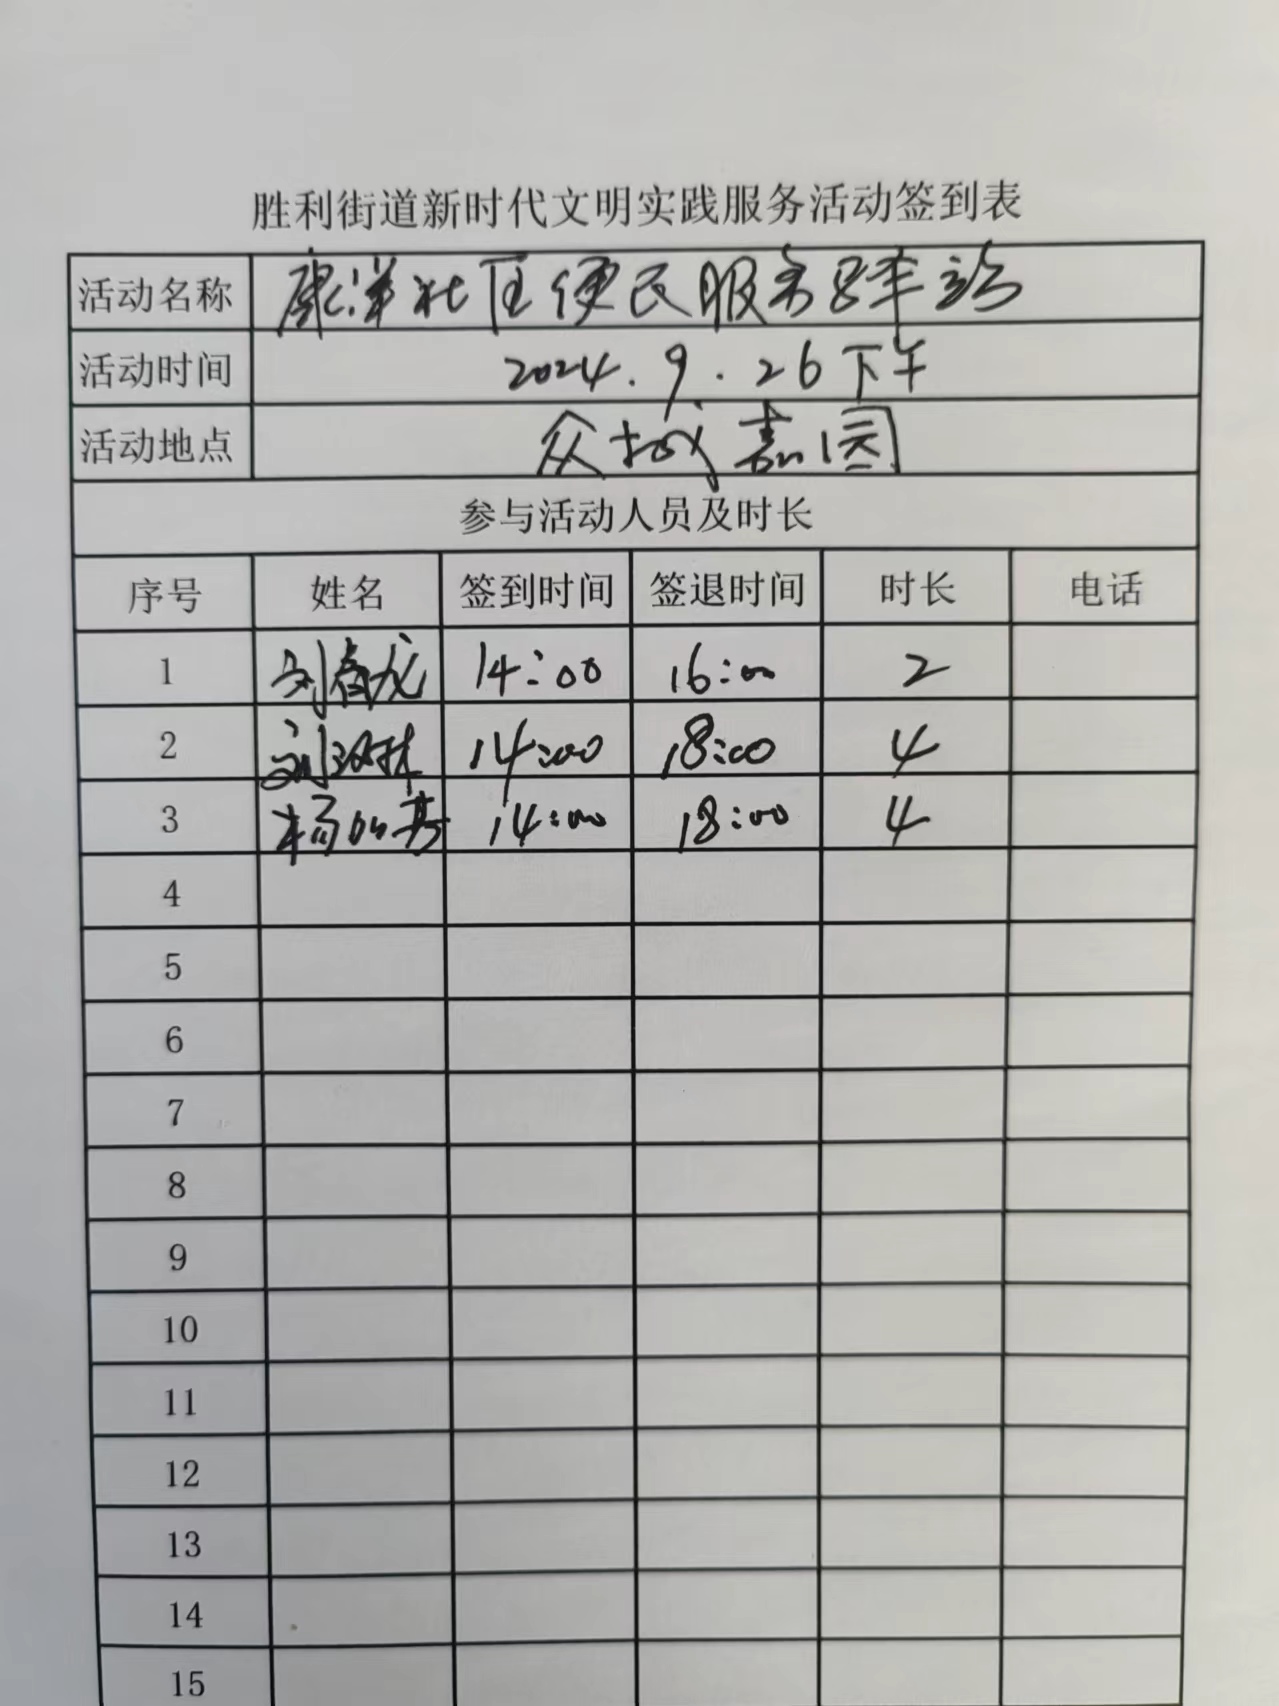 胜利街道新时代文明实践服务活动签到表
活动名称 康洋社区便民服务驿站
活动时间 2024.9.26下午
活动地点 众城嘉园
参与活动人员及时长
序号 姓名 签到时间 签退时间 时长 电话
1 刘春龙 14:00 16:00 2
2 刘汉林 14:00 18:00 4
3 杨 14:00 18:00 4
4
5
6
7
8
9
10
11
12
13
14
15